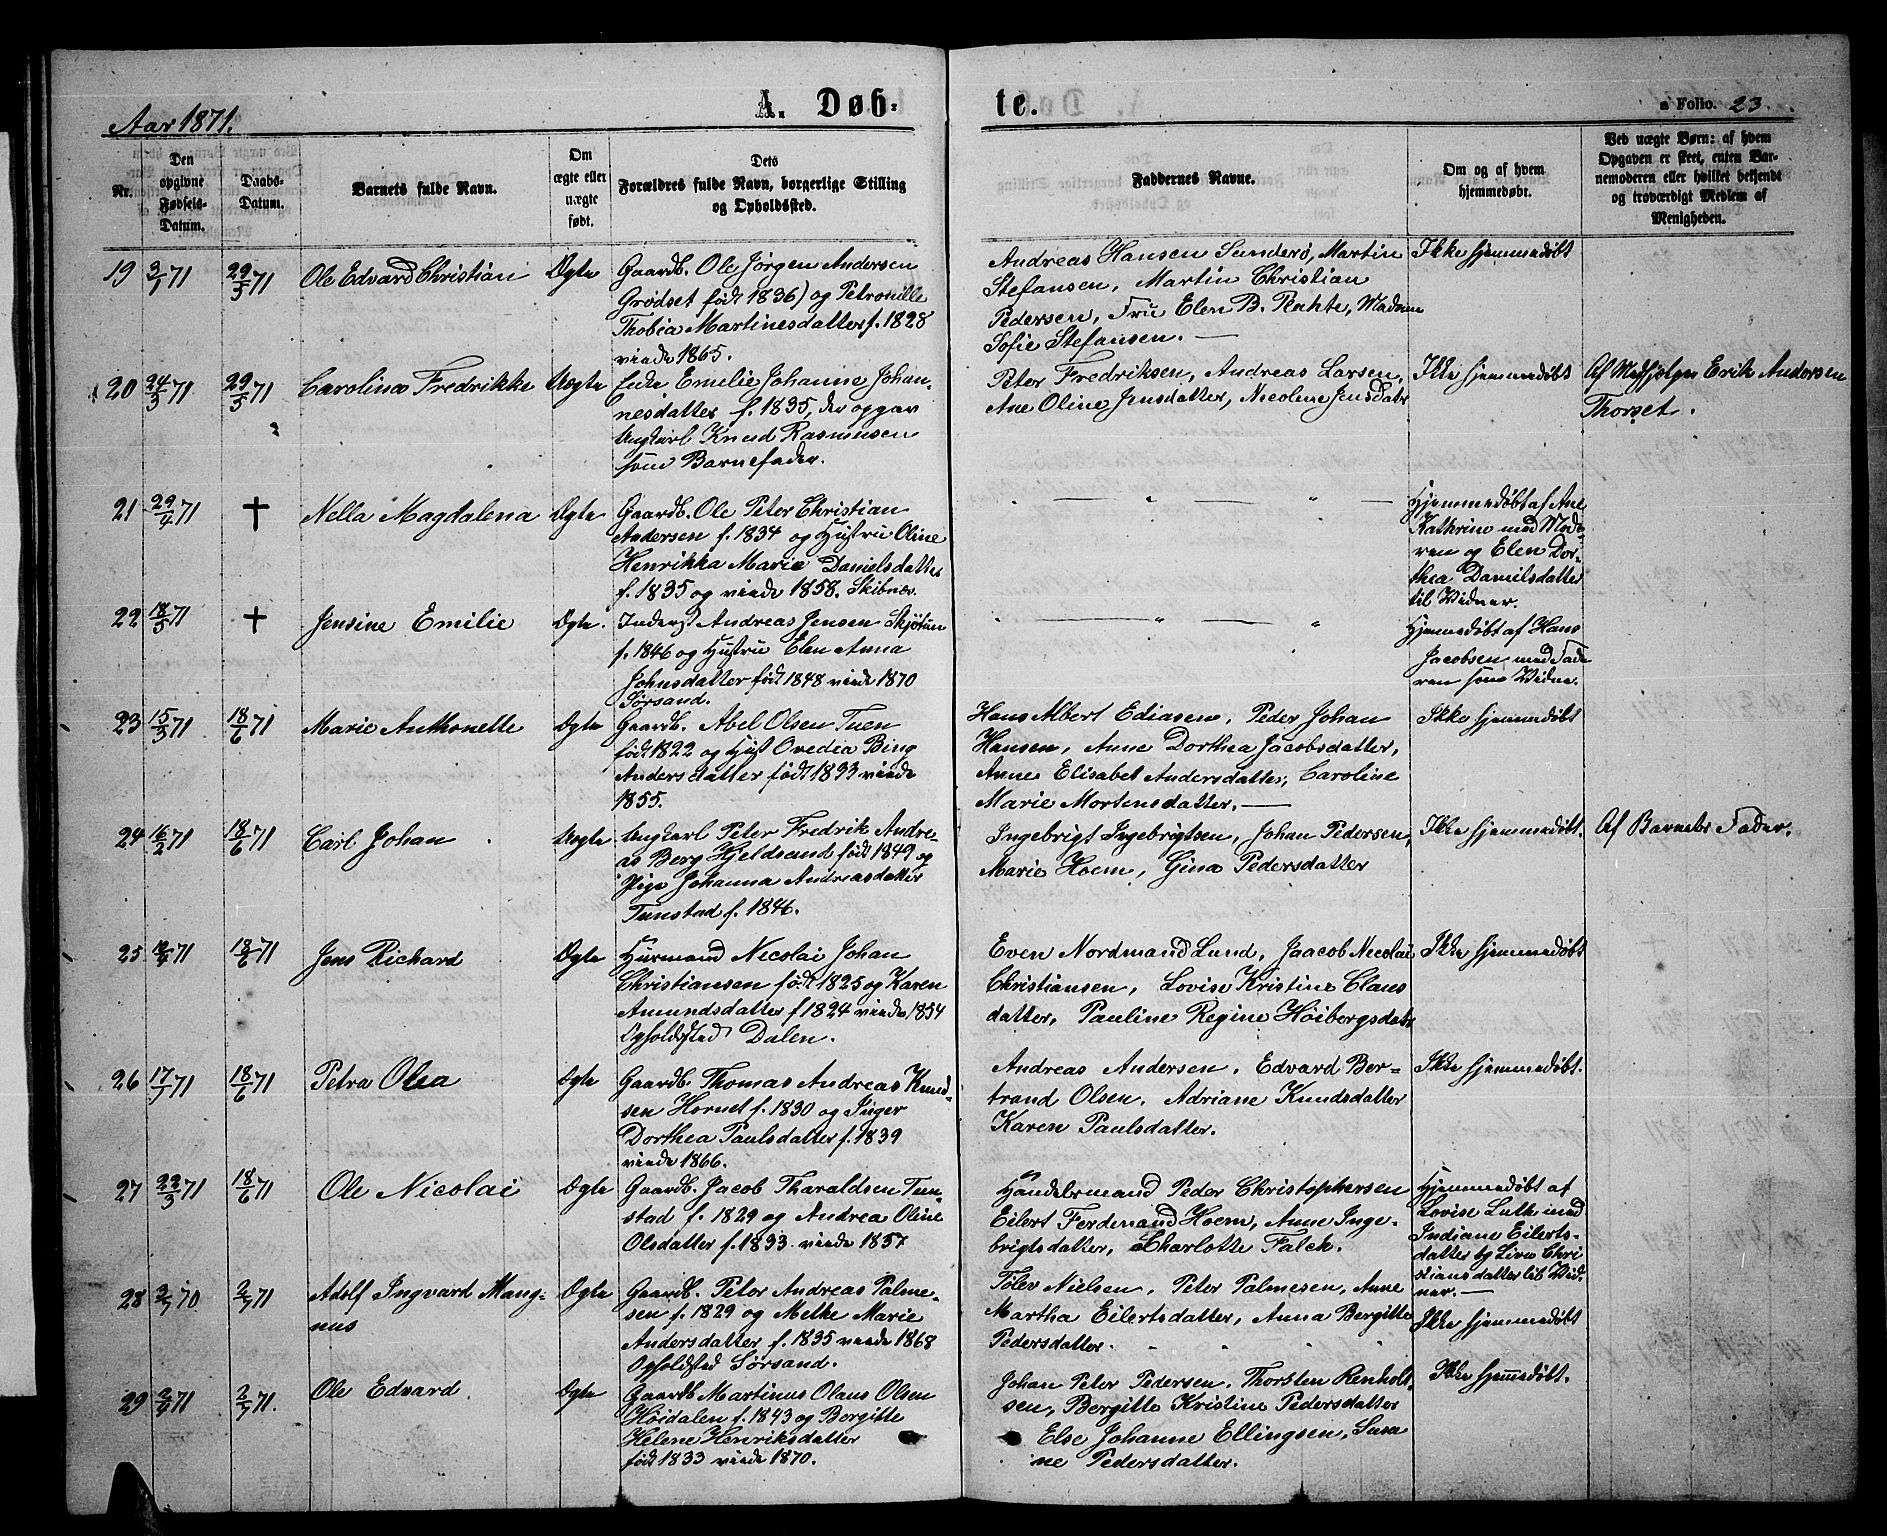 Aar 1871.
A. Døbte.
a Folio. 23.
Nr.
Den opgivne Fødsels-Datum.
Daabs-Datum.
Barnets fulde Navn.
Om ægte eller uægte født.
Dets Forældres fulde Navn, borgerlige Stilling og Opholdssted.
Faddernes Navne.
Om og af hvem hjemmedøbt.
Ved uægte Børn: af hvem Opgaven er skeet, enten Barnemoderen eller hvilket bekjendt og troværdigt Medlem af Menigheden.
19 3/1 71 29/5 71 Ole Edvard Christian Ægte
Gaardb. Ole Jørgen Andersen
Grødset født 1836) og Petronille
Thobia Martinesdatter f. 1828
viede 1865.
Andreas Hansen Sunderø, Martin
Stefansen, Martin Christian
Pedersen, Fru Elen B. Madame
Sofie Stefansen.
Ikke hjemmedøbt
20 24/3 71 29/5 71 Carolina Fredrikke Uægte
Emelie Johanne Johan-
nesdatter f. 1835, der opgav
Ungkarl Knud Rasmussen
som Barnefader.
Peter Fredriksen, Andreas Larsen,
Ane Oline Jensdatter, Nicoline Jensdatr
Ikke hjemmedøbt
Af Medhjelper Erik Andersen
Thorset.
21 29/4 71 † Nella Magdalena Ægte
Gaardb. Ole Peter Christian
Andersen f. 1834 og Hustru Oline
Henrikka Maria Danielsdatter
f. 1835 og viede 1858. Skibnæs.
Hjemmedøbt af Ane
Kathrine med Mode-
ren og Elen Dor-
thea Danielsdatter
til Vidner.
22 18/5 71 † Jensine Emilie Ægte.
Inderst Andreas Jensen Skjøtun
f. 1846 og Hustru Elen Anna
Johnsdatter født 1848 viede 1870
Sørsand.
Hjemmedøbt af Hans
Jacobsen med Fade
ren som Vidne.
23 15/3 71 18/6 71 Marie Anthonette Ægte
Gaardb. Abel Olsen Tuen
født 1822 og Hust Ovedia Bing
Andersdatter født 1833 viede
1855.
Hans Albert Ediasen, Peder Johan
Hansen, Anne Dorthea Jacobsdatter,
Anne Elisabet Andersdatter, Caroline
Marie Mortensdatter.
Ikke hjemmedøbt
24 16/2 71 18/6 71 Carl Johan Uægte
Ungkarl Peter Fredrik Andre-
as Berg Hjeldsand født 1849 og
Pige Johanna Andreasdatter
Tunstad f. 1846.
Ingebrigt Ingebrigtsen, Johan Pedersen,
Marie Hoem, Gina Pedersdatter
Ikke hjemmedøbt.
Af Barnets Fader.
25 71 18/6 71 Jens Richard Ægte
Husmand Nicolai Johan
Christiansen født 1825 og Karen
Amundsdatter f 1824 viede 1854
Opholdsted Dalen.
Even Nordmand Lund, Jaacob Nicolai
Christiansen, Lovise Kristine Claus
datter, Pauline Regine Høibergsdatr
Ikke hjemmedøbt
26 17/7 71 18/6 71 Petra Olea Ægte
Gaardb. Thomas Andreas Knud-
sen Hornet f. 1830 og Inger
Dorthea Paulsdatter f. 1839
viede 1866.
Andreas Andersen, Edvard Ber-
trand Olsen, Adriane Knudsdatter
Karen Paulsdatter.
Ikke hjemmedøbt.
27 22/3 71 18/6 71 Ole Nicolai Ægte
Gaardb. Jacob Tharaldsen Tun-
stad f. 1829 og Andrea Oline
Olsdatter f. 1833 viede 1857
Handelsmand Peder Christophersen
Eilert Ferdinand Hoem, Anne Inge-
brigtsdatter, Charlotte Falck.
Hjemmedøbt af
Lovise Luth med
Indiane Eilerts-
datter og Live Chri
stiansdatter til Vid-
ner.
28 2/7 70 2/7 71 Adolf Ingvard Mang-
nus Ægte
Gaardb. Peter Andreas Palme-
sen f. 1829 og Metke Marie
Andersdatter f. 1835 viede 1868
Opholdsted Sørsand.
Tølev Nielsen, Peter Palmesen, Anne
Martha Eilertsdatter, Anna Bergitte
Pedersdatter.
Ikke hjemmedøbt
29 71 2/7 71. Ole Edvard. Ægte
Gaardb Martinus Olaus Olsen
Høidalen f. 1843 og Bergitte
Helene Henriksdatter
født 1833 viede 1870.
Johan Peter Pedersen, Thorsten Renholt-
sen, Bergitte Kristine Pedersdatter
Else Johanne Ellingsen, Susa
ne Pedersdatter.
Ikke hjemmedøbt.